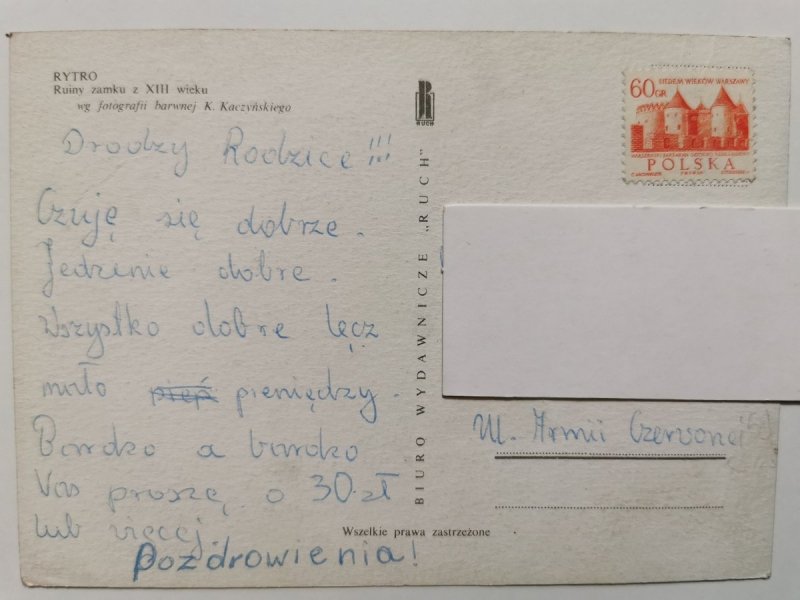 RYTRO
Ruiny zamku z XIII wieku
wg fotografii barwnej K. Kaczyńskiego
Drodzy Rodzice!!!
Czuję się dobrze.
Jedzenie dobre.
Wszystko dobre lęcz
mało pieniędzy.
Bardzo a bardzo
Vas proszę o 30 zł
lub więcej.
Pozdrowienia!
RUCH
BIURO WYDAWNICZE „RUCH"
60 GR
SIEDEM WIEKÓW WARSZAWY
POLSKA
Ul. Armii Czerwonej
Wszelkie prawa zastrzeżone